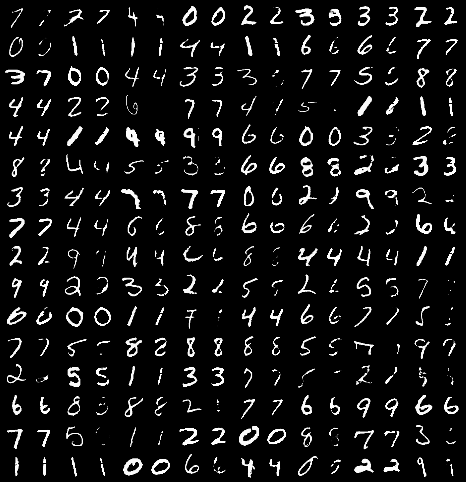 7 2 7 4 0 0 2 2 3 3 3 3 2 2
0 0 1 1 1 1 4 4 1 1 6 6 6 6 7 7
3 7 0 0 4 4 3 3 3 7 7 5 8 8
4 4 2 2 6 7 7 4 1 5 1 1 1 1
4 4 1 1 9 9 9 9 6 6 0 0 3 2
8 4 4 5 5 3 6 6 8 8 2 3 3
3 3 4 4 7 7 7 7 0 0 2 1 9 9 2
7 7 4 4 6 6 8 8 6 6 6 6 2 6 6
2 2 9 9 4 4 6 8 4 4 4 4 1 1
9 9 2 2 3 3 2 5 5 2 5 5 7
0 0 0 0 1 1 7 4 4 6 6 7 7 5
7 7 5 8 2 8 8 8 8 5 5 7 9 9
2 5 5 1 1 3 3 7 7 5 2
6 6 8 8 8 8 2 7 7 6 6 9 9 6 6
7 7 5 1 1 2 2 0 0 8 7 7 3
1 1 1 1 0 0 6 6 4 4 0 2 2 9